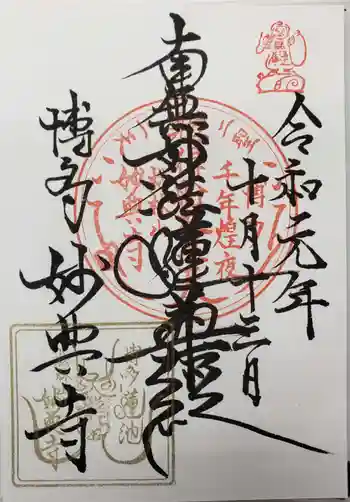 令和元年
十月十三日
南無妙法蓮華経
博多 妙典寺
千年煌夜
妙典寺
博多
蓮池
妙典寺